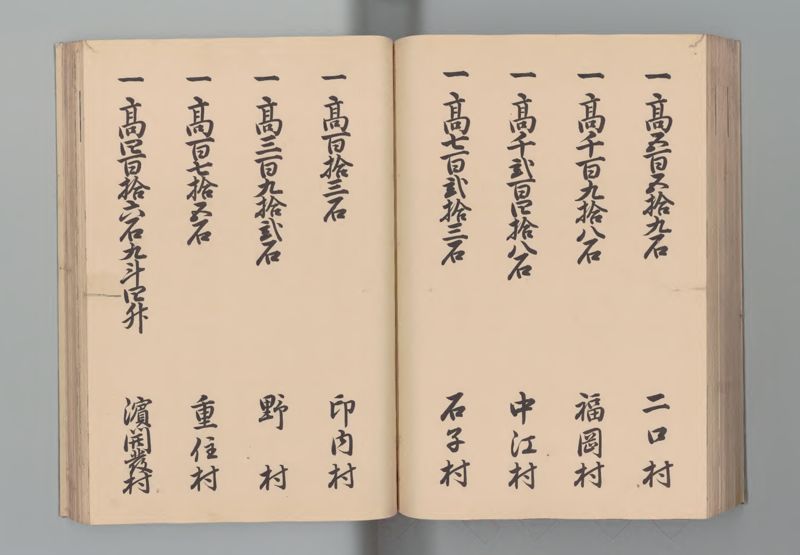 一 髙五百五拾九石 二口村
一 髙千百九拾八石 福岡村
一 髙千弐百四拾八石 中江村
一 髙七百弐拾三石 石子村
一 髙百拾三石 印内村
一 髙三百九拾弐石 野村
一 髙百七拾五石 重住村
一 髙四百拾六石九斗四升 濵開發村